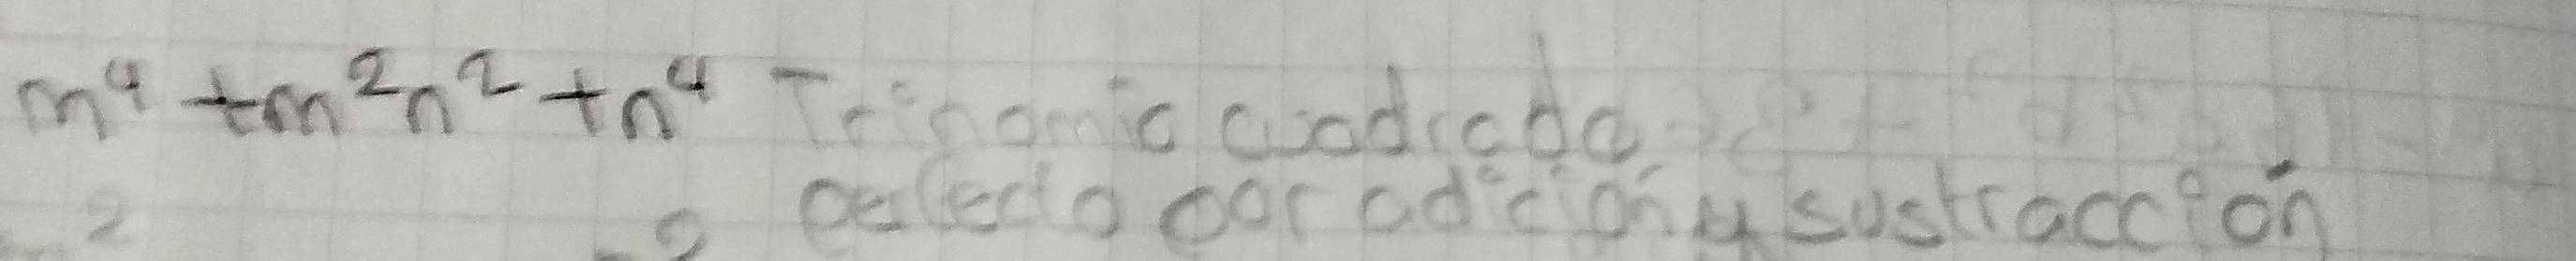 m⁴ +m²n² +n⁴ Trinomio cuadrado
perfecto por adición y sustracción
2 2